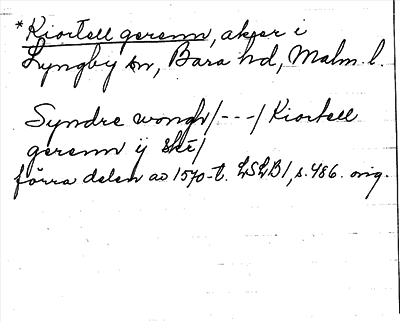 *Kiortell gerenn, aker i
Lyngby sn, Bara hd, Malm. l.
Syndre wongh/---/Kiortell
gerenn ij skē/
förra delen av 1570-t. LSLB1, s. 486. orig.